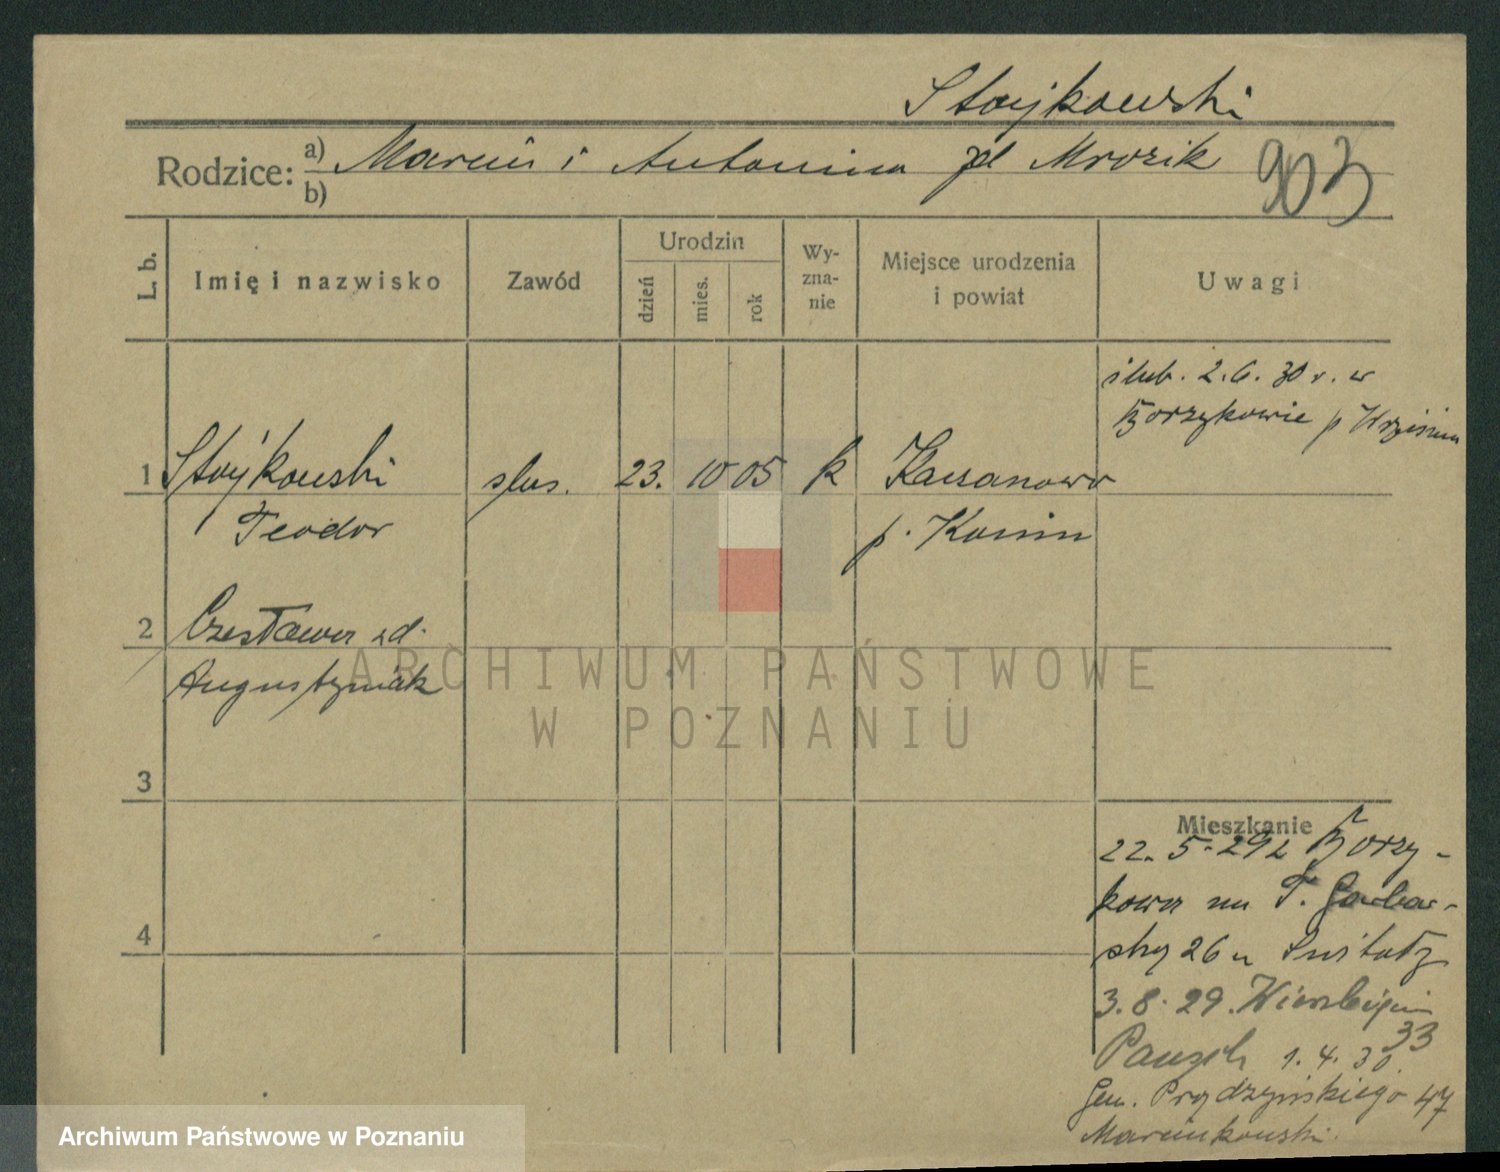 Stojkowski
Rodzice: a) Marcin i Antonina zd Mrozik
b)
903
L. b.
Imię i nazwisko
Zawód
Urodzin
dzień
mies.
rok
Wy-
zna-
nie
Miejsce urodzenia
i powiat
Uwagi
ślub. 2.6.30 r. w
Borzykowie p Września
1 Stojkowski ślus. 23. 10 05 k
Teodor
p. Konin
2 Czesława zd.
Augustyniak
3
4
Mieszkanie
22. 5. 29 z Borzy-
kowa na T. Garbar-
sky 26 u
3. 8. 29. Wierzbięcin
33
1. 4. 30.
Gen. Prądzyńskiego 47
Marcinkowski.
ARCHIWUM PAŃSTWOWE
W POZNANIU
Archiwum Państwowe w Poznaniu